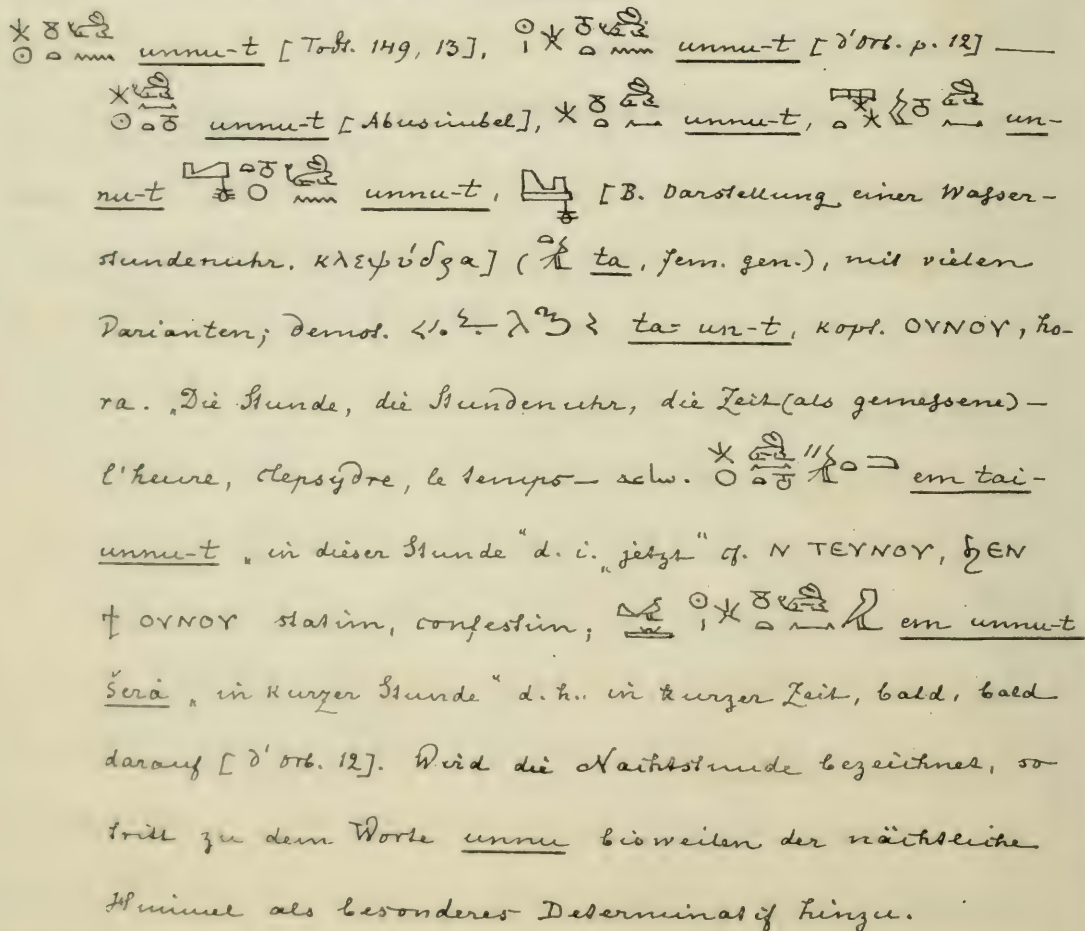 unnu-t [Todt. 149, 13], unnu-t [d'Orb. p. 12] —
unnu-t [Abusimbel], unnu-t, un-
nu-t unnu-t, [B. Darstellung einer Wasser-
stundenuhr. κλεψύδρα] (ta, fem. gen.), mit vielen
Varianten; demot. ta-un-t, kopt. ΟΥΝΟΥ, ho-
ra. „Die Stunde, die Stundenuhr, die Zeit (als gemessene) —
l'heure, clepsydre, le temps — adv. em tai-
unnu-t „in dieser Stunde“ d. i. „jetzt“ cf. Ν ΤΕΥΝΟΥ, ϧΕΝ
ϯ ΟΥΝΟΥ statim, confestim; em unnu-t
šerȧ „in kurzer Stunde“ d. h. in kurzer Zeit, bald, bald
darauf [d'Orb. 12]. Wird die Nachtstunde bezeichnet, so
tritt zu dem Worte unnu bisweilen der nächtliche
Himmel als besonderes Determinatif hinzu.